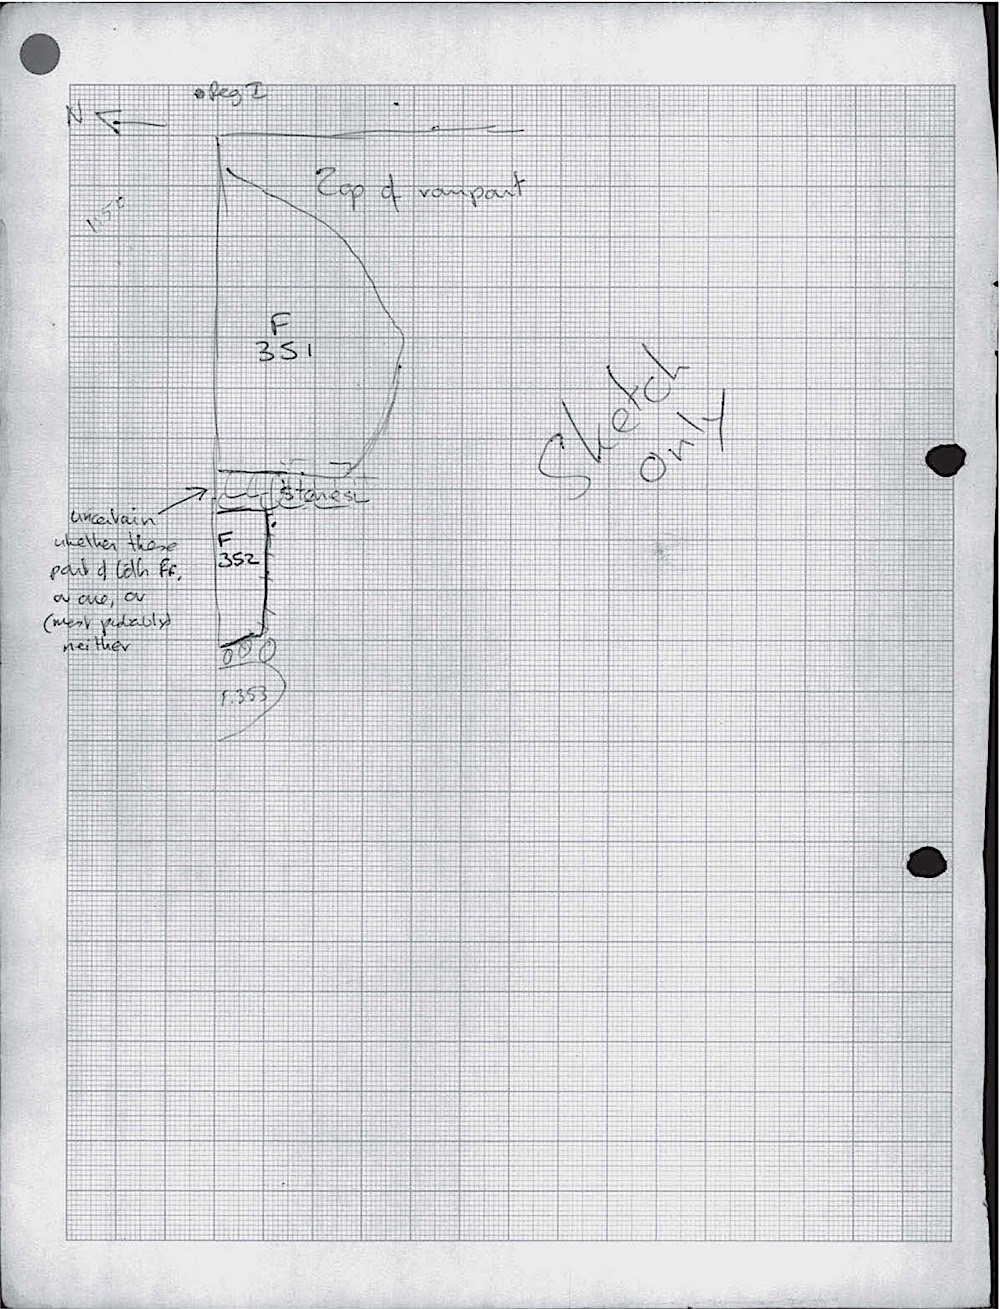 Peg I
N
Top of rampart
1:50
F
351
Sketch
only
stones
uncertain
whether these
part of both Ff,
or one, or
(most probably)
neither
F
352
F.353